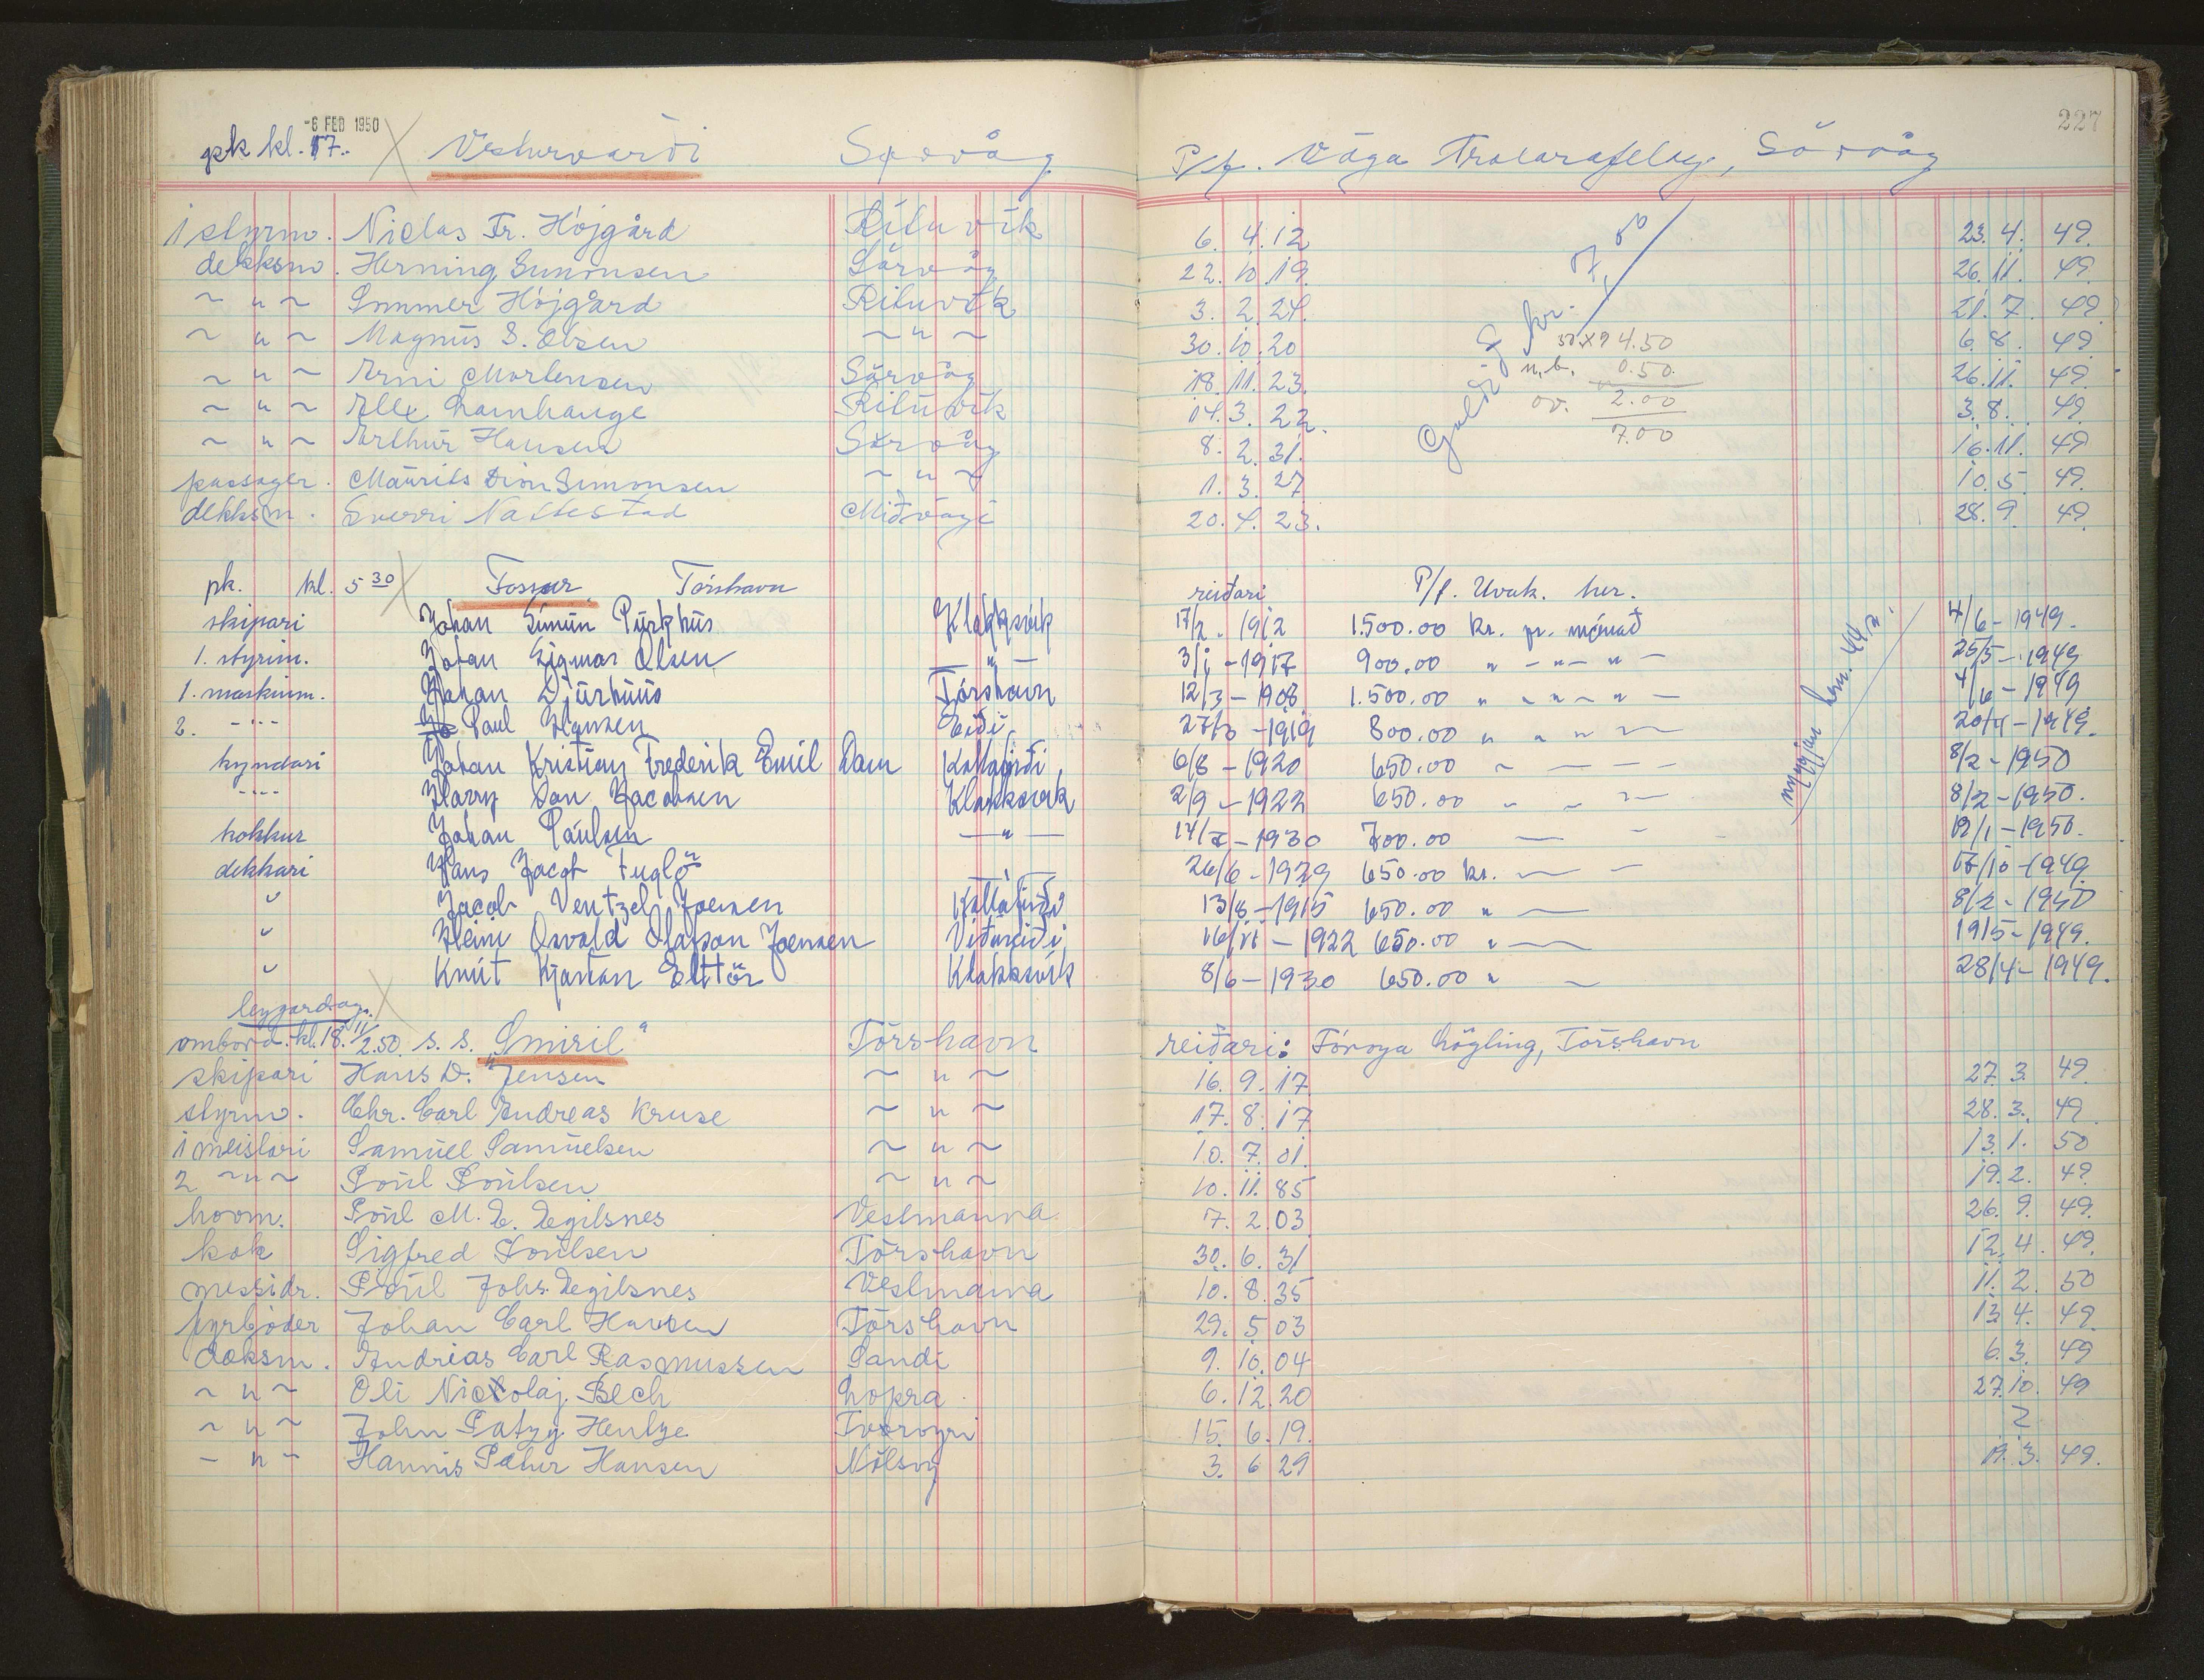 -6 FEB 1950
227
pk kl. 17. Vesturvarði Sørvåg P/f. Våga Trolarafelag, Sörvåg
1 styrm. Niclas Fr. Höjgård Rituvík 6. 4. 12 23. 4. 49.
dekksm. Henning Simonsen Sörvåg 22. 10. 19. 26. 11. 49
~ " ~ Sommer Höjgård Rituvík 3. 2. 24. 21. 7. 49
~ " ~ Magnus S. Olsen ~ " ~ 30. 10. 20 6. 8. 49
~ " ~ Arni Mortensen Sörvåg 18. 11. 23. 26. 11. 49
~ " ~ Alex Lamhauge Rituvík 14. 3. 22. 3. 8. 49
~ " ~ Arthur Hansen Sörvåg 8. 2. 31. 16. 11. 49
passager. Maurits Dion Simonsen ~ " ~ 1. 3. 27 10. 5. 49.
dekksm. Sverri Nattestad Miðvági 20. 4. 23. 28. 9. 49.
Goldið kr. 7,50
4.50
0.50.
2.00
7.00
pk. kl. 5 30 Fossur Tórshavn reiðari P/f. Uvak. her.
skipari Johan Símun Púrkhús Klakksvík 17/2 - 1912 1.500.00 kr. pr. mánað 4/6 - 1949.
1. styrim. Johan Sigmar Olsen — " — 3/1 - 1917 900.00 " - " - " - 25/5 - 1949
1. maskinm. Johan Djurhuus Tórshavn 12/3 - 1908 1.500.00 " - " - " - 4/6 - 1949
2. - " - Paul Hansen Eiði - 1919 800.00 " " " - 20/4 - 1949.
kyndari Johan Kristian Frederik Emil Dam Kollafirði 6/8 - 1920 650.00 8/2 - 1950
- " - Harry Dan Jacobsen Klakksvík 2/9 - 1922 650.00 8/2 - 1950.
kokkur Johan Paulsen — " — 14/7 - 1930 700.00 19/1 - 1950.
dekkari Hans Jacob Fuglö — " — 26/6 - 1929 650.00 kr. 17/10 - 1949
" Jacob Ventzel Joensen Kollafirði 13/8 - 1915 650.00 " 8/2 - 1950
" Heini Osvald Olafson Joensen Viðareiði 16/11 - 1922 650.00 " 19/5 - 1949.
" Knút Kjartan Elttör Klakksvík 8/6 - 1930 650.00 " 28/4 - 1949.
leygardag.
ombord. kl. 18. 11/2.50. s. s. "Smiril" Tórshavn reiðari: Föroya Lögting, Tórshavn
skipari Hans D. Jensen ~ " ~ 16. 9. 17 27. 3. 49
styrm. Chr. Carl Andreas Kruse ~ " ~ 17. 8. 17 28. 3. 49
1 meistari Samuel Samuelsen ~ " ~ 10. 7. 01. 13. 1. 50
2 ~ " ~ Poul Poulsen ~ " ~ 10. 11. 85 19. 2. 49
hovm. Poul M. E. Degilsnes Vestmanna 7. 2. 03 26. 9. 49.
kok Sigfred Poulsen Tórshavn 30. 6. 31 12. 4. 49.
messidr. Poul Johs. Degilsnes Vestmanna 10. 8. 35 11. 2. 50
fyrbøder Johan Carl Hansen Tórshavn 29. 5 03 13 4. 49.
deksm. Andrias Carl Rasmussen Sandi 9. 10. 04 6. 3. 49
~ " ~ Oli Nicolaj Bech Lopra 6. 12. 20 27. 10. 49
~ " ~ John Patzy Hentze Tvøroyri 15. 6. 19. ?
- " - Hannis Peter Hansen Nólsoy 3. 6 29 19. 3. 49.